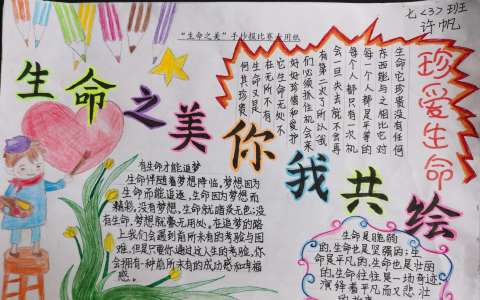 七<3>班
许帆
“生命之美”手抄报比赛专用纸
生命之美你我共绘
珍爱生命
生命它珍贵没有任何
东西能与之相比它对
每一个人都是平等的
每个人都只有一次机
会一旦失去就不会再
有第二次了所以我
们必须抓住机会来
好好珍惜和爱护
它生命无处不
在无所不有
生命又是
何其珍贵
有生命才能追梦
生命伴随着梦想降临，梦想因为
生命而能追逐，生命因为梦想而
精彩，没有梦想，生命就暗淡无色；没
有生命，梦想就毫无用处，在追梦的路
上我们会遇到前所未有的考验与困
难，但是只要你通过这人生的考验，你
会拥有一种前所未有的成功感和幸福
感。
生命是脆弱
的，生命也是坚强的；生
命是平凡的，生命也是壮丽
的。生命往往是一场奇迹，
演绎着平凡而又悲壮